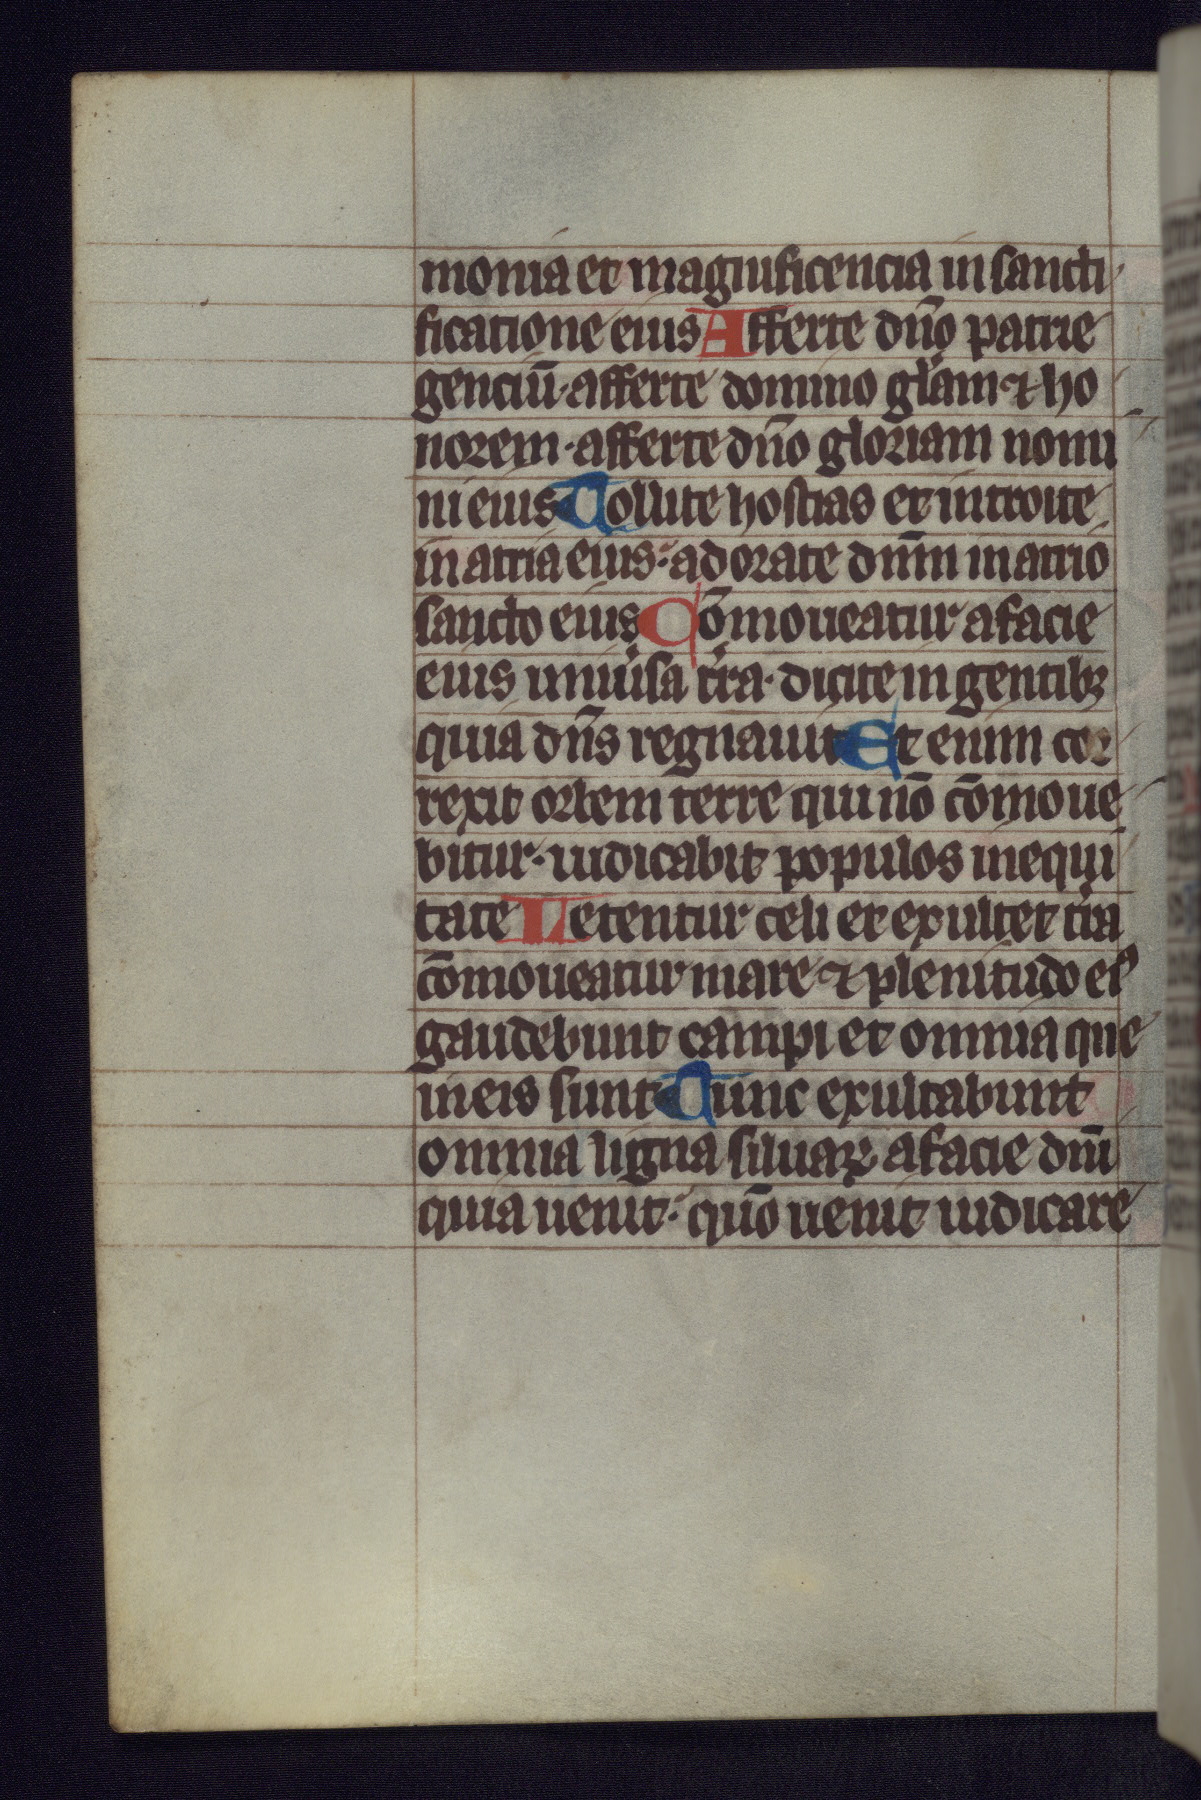 monia et magnificencia in sancti
ficatione eius Afferte dn̄o patrie
genciū· afferte domino gl̄am ⁊ ho
norem· afferte dn̄o gloriam nomi
ni eius Tollite hostias et introite
in atria eius· adorate dn̄m in atrio
sancto eius Cōmoueatur a facie
eius uniu̾sa t̾ra· dicite in gentibꝫ
quia dn̄s regnauit Et enim cor
rexit orbem terre qui nō cōmoue
bitur· iudicabit populos in equi
tate Letentur celi et exultet t̾ra
cōmoueatur mare ⁊ plenitudo eiꝰ
gaudebunt campi et omnia que
in eis sunt Tunc exultabunt
omnia ligna siluaꝝ a facie dn̄i
quia uenit· quō uenit iudicare